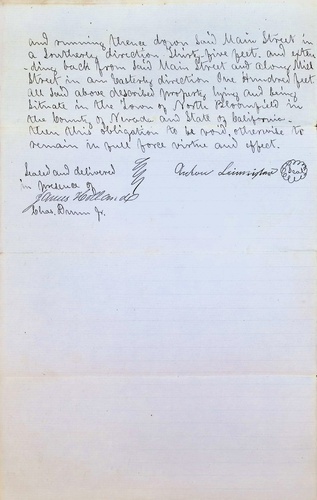 and running thence upon Said Main Street in
a Southerly direction Thirty-five feet, and exten
-ding back from Said Main Street and along Mill
Street in an Easterly direction One Hundred feet
all said above described property lying and being
Situate in the Town of North Bloomfield in
the County of Nevada and State of California—
Then this obligation to be void, otherwise to
remain in full force virtue and effect.
Sealed and delivered
in presence of
James Holland
Chas. Dunn Jr.
Seal